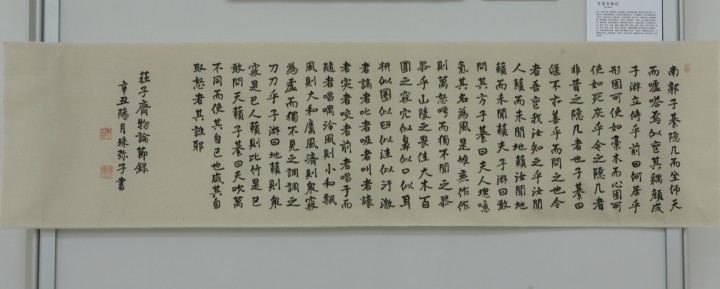 南郭子綦隱几而坐仰天
而噓嗒焉似喪其耦顏成
子游立侍乎前曰何居乎
形固可使如槁木而心固可
使如死灰乎今之隱几者
非昔之隱几者也子綦曰
偃不亦善乎而問之也今
者吾喪我汝知之乎汝聞
人籟而未聞地籟汝聞地
籟而未聞籟夫子游曰敢
問其方子綦曰夫大塊噫
氣其名為風是唯無作作
則萬怒呺而獨不聞之翏
翏乎山陵之畏佳大木百
圍之竅穴似鼻似口似耳
枅似圈似臼似洼似汙激
者謞者叱者吸者叫者譹
者宎者咬者前者唱于而
隨者唱喁泠風則小和飄
風則大和厲風濟則眾竅
為虛而獨不見之調調之
刀刀乎子游曰地籟則眾
竅是已人籟則比竹是已
敢問天籟子綦曰夫吹萬
不同而使其自己也咸其自
取怒者其誰耶
莊子齊物論節錄
辛丑陽月珠弥子書